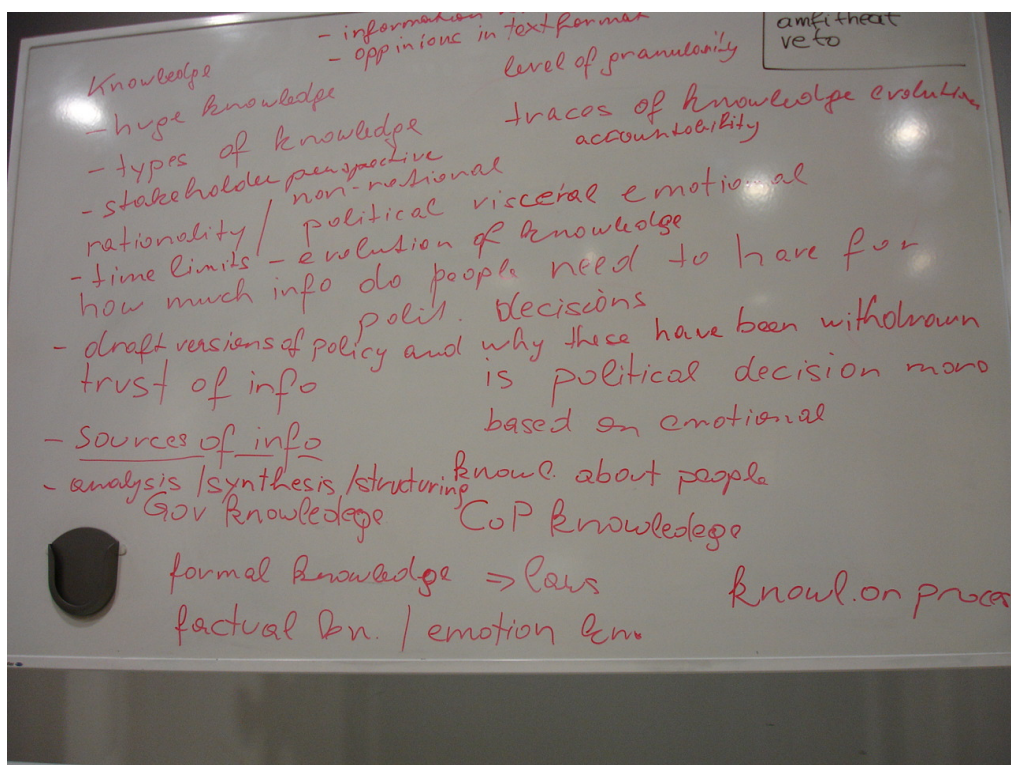 - information
- oppinions in text format
amfitheat
veto
Knowledge
level of granularity
- huge knowledge
traces of knowledge evolution
accountability
- types of knowledge
- stakeholder perspective
rationality / non-rational
political visceral emotional
- time limits - evolution of knowledge
how much info do people need to have for
polit. decisions
- draft versions of policy and why these have been withdrawn
trust of info
is political decision more
based on emotional
- sources of info
- analysis / synthesis / structuring
knowl. about people
Gov knowledege
CoP knowledege
formal knowledge => laws
knowl. on proces
factual kn. / emotion kn.